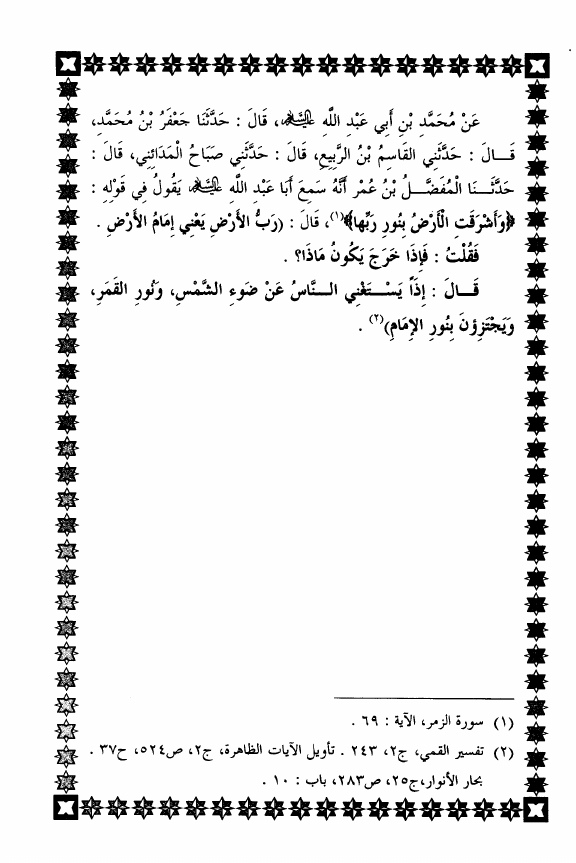 عَنْ مُحَمَّدِ بْنِ أَبِي عَبْدِ اللَّهِ عليه السلام، قَالَ : حَدَّثَنَا جَعْفَرُ بْنُ مُحَمَّدٍ،
قَـالَ : حَدَّثَنِي القَاسِمُ بْنُ الرَّبِيعِ، قَالَ : حَدَّثَنِي صَبَاحُ الْمَدَائِنِي، قَالَ :
حَدَّثَـنَا الْمُفَضَّـلُ بْنُ عُمَرْ أَنَّهُ سَمِعَ أَبَا عَبْدِ اللَّهِ عليه السلام يَقُولُ فِي قَوْلِهِ :
﴿وَأَشْرَقَتِ الْأَرْضُ بِنُورِ رَبِّها﴾(١)، قَالَ : (رَبُّ الأَرْضِ يَعْنِي إِمَامُ الأَرْضِ .
فَقُلْتُ : فَإِذَا خَرَجَ يَكُونُ مَاذَا؟ .
قَـالَ : إِذَاً يَسْـتَغْنِي الـنَّاسُ عَنْ ضَوءِ الشَّمْسِ، وَنُورِ القَمَرِ،
وَيَجْتَزِؤنَ بِنُورِ الإِمَامِ)(٢) .
(١) سورة الزمر، الآية : ٦٩ .
(٢) تفسير القمي، ج٢، ٢٤٣ . تأويل الآيات الظاهرة، ج٢، ص٥٢٤، ح٣٧ .
بحار الأنوار،ج٢٥، ص٢٨٣، باب : ١٠ .